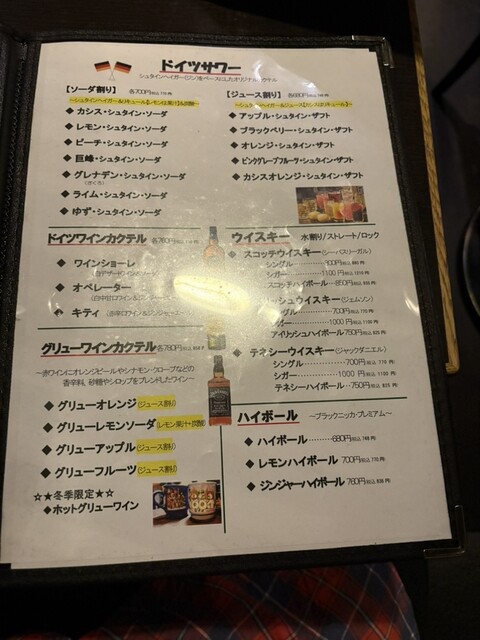 ドイツサワー
シュタインヘイガー(ジン)をベースにしたオリジナルカクテル
【ソーダ割り】 各700円(税込770円)
～シュタインヘイガー&リキュール&レモン果汁&炭酸～
◆ カシス・シュタイン・ソーダ
◆ レモン・シュタイン・ソーダ
◆ ピーチ・シュタイン・ソーダ
◆ 巨峰・シュタイン・ソーダ
◆ グレナデン・シュタイン・ソーダ
(ざくろ)
◆ ライム・シュタイン・ソーダ
◆ ゆず・シュタイン・ソーダ
【ジュース割り】 各680円
～シュタインヘイガー&ジュース
◆ アップル・シュタイン・ザフト
◆ ブラックベリー・シュタイン・ザフト
◆ オレンジ・シュタイン・ザフト
◆ ピンクグレープフルーツ・シュタイン・ザフト
◆ カシスオレンジ・シュタイン・ザフト
ドイツワインカクテル 各780円
◆ ワインショーレ
◆ オペレーター
◆ キティ
グリューワインカクテル 各780円(税込858円)
～赤ワインにオレンジピールやシナモン・クローブなどの
香辛料、砂糖やシロップをブレンドしたワイン～
◆ グリューオレンジ (ジュース割り)
◆ グリューレモンソーダ (レモン果汁+炭酸)
◆ グリューアップル (ジュース割り)
◆ グリューフルーツ (ジュース割り)
☆★冬季限定★☆
◆ホットグリューワイン
ウイスキー 水割り/ストレート/ロック
◆ スコッチウイスキー(シーバスリーガル)
シングル
シガー 1100円(税込1210円)
スコッチハイボール 850円
シュウイスキー(ジェムソン)
グル 700円(税込770円)
ガー 1000円(税込1100円)
アイリッシュハイボール750円(税込825円)
◆ テネシーウイスキー(ジャックダニエル)
シングル 700円(税込770円)
シガー 1000円(税込1100円)
テネシーハイボール 750円(税込825円)
ハイボール ～ブラックニッカ・プレミアム～
◆ ハイボール 680円(税込748円)
◆ レモンハイボール 700円(税込770円)
◆ ジンジャーハイボール 760円(税込836円)